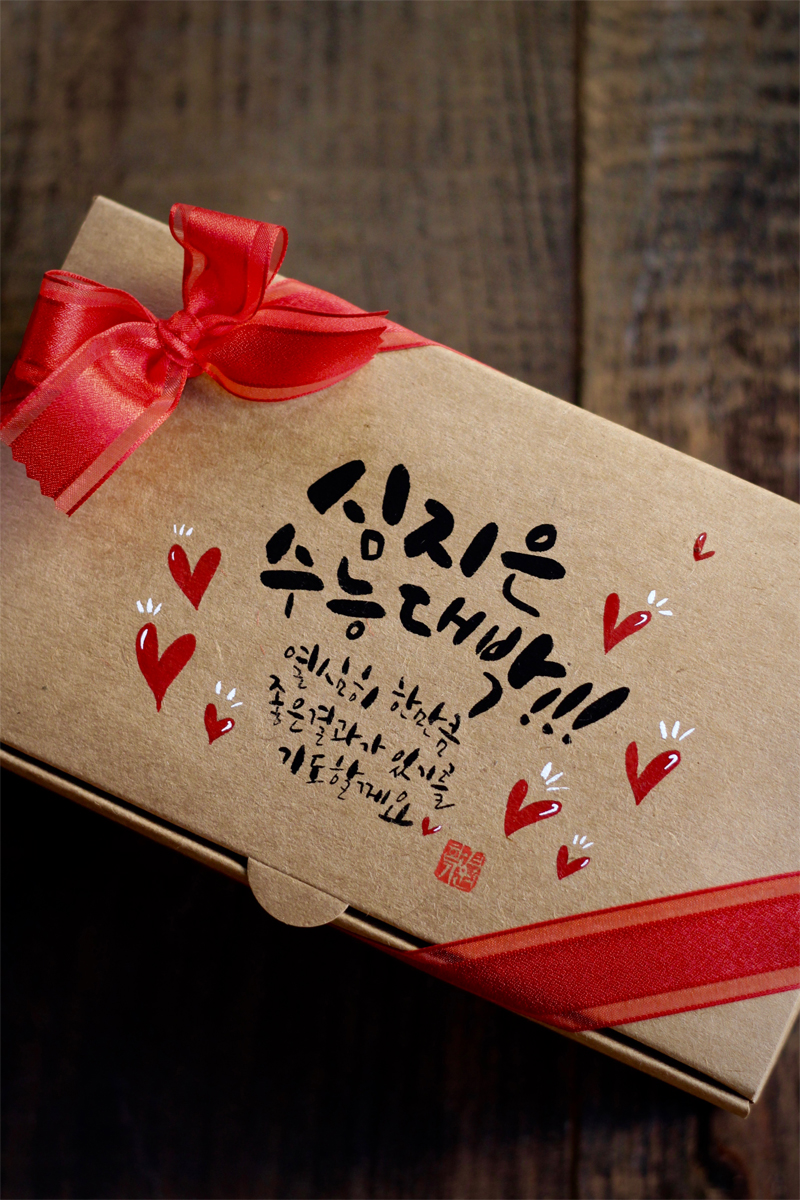 심지은
수능대박!!!
열심히 한만큼
좋은결과가 있기를
기도할께요